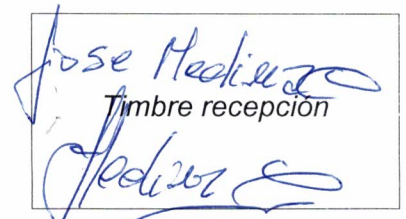 Jose Medina
Timbre recepción
Medina